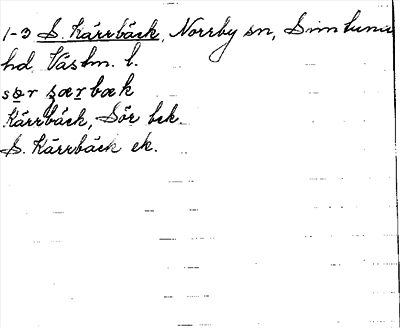 1-3 S. Kärrbäck, Norrby sn, Simtuna
hd Västm. l.
sør særbæk
Kärrbäck, Sör bck.
S. Kärrbäck ek.